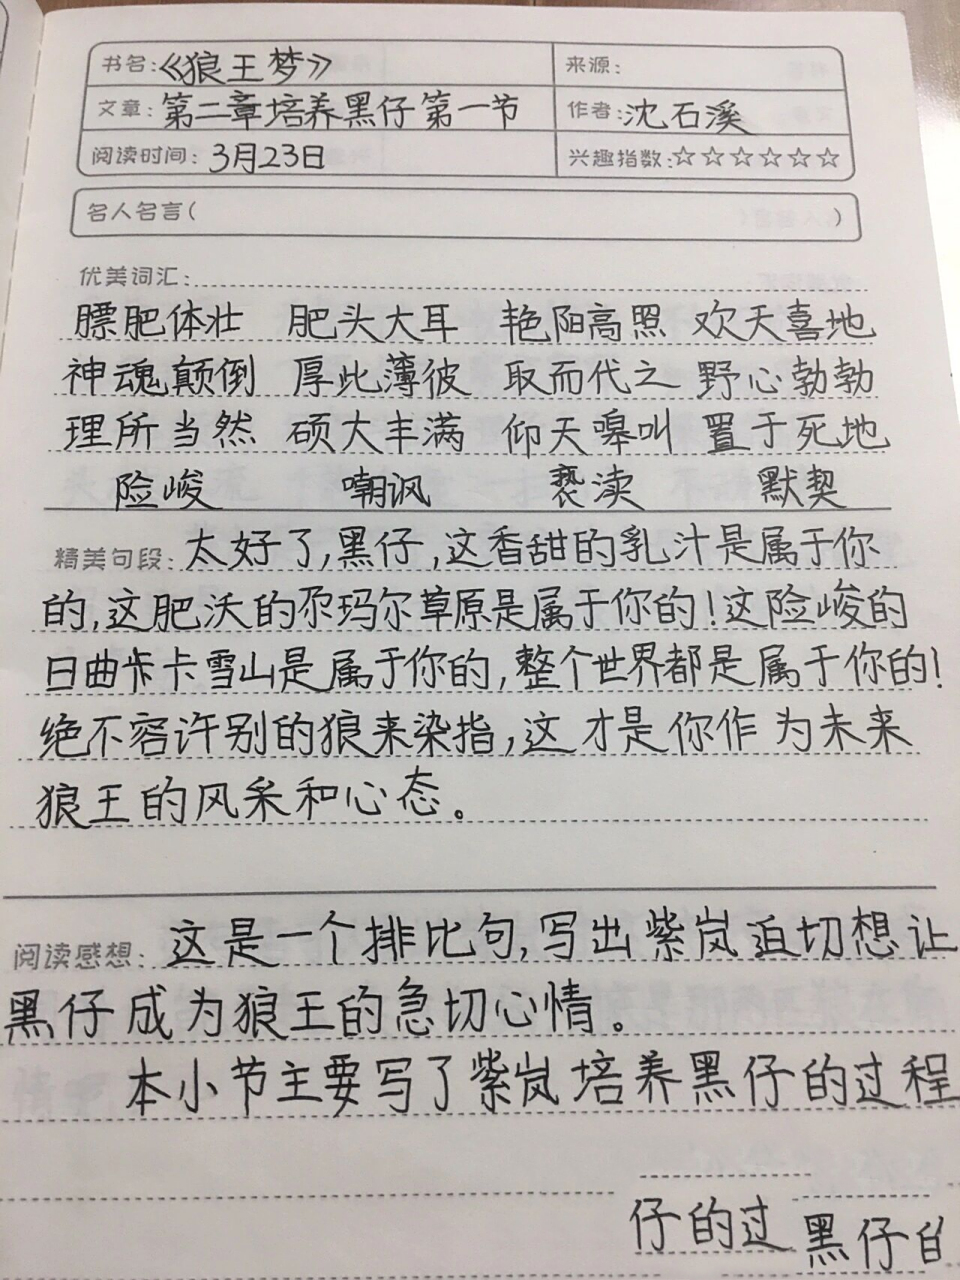 书名:《狼王梦》 来源:
文章:第二章培养黑仔第一节 作者:沈石溪
阅读时间:3月23日 兴趣指数:☆☆☆☆☆☆
名人名言( )
优美词汇:
膘肥体壮 肥头大耳 艳阳高照 欢天喜地
神魂颠倒 厚此薄彼 取而代之 野心勃勃
理所当然 硕大丰满 仰天嗥叫 置于死地
险峻 嘲讽 亵渎 默契
精美句段:太好了,黑仔,这香甜的乳汁是属于你
的,这肥沃的尕玛尔草原是属于你的!这险峻的
日曲卡卡雪山是属于你的,整个世界都是属于你的!
绝不容许别的狼来染指,这才是你作为未来
狼王的风采和心态。
阅读感想:这是一个排比句,写出紫岚迫切想让
黑仔成为狼王的急切心情。
本小节主要写了紫岚培养黑仔的过程
仔的过 黑仔的